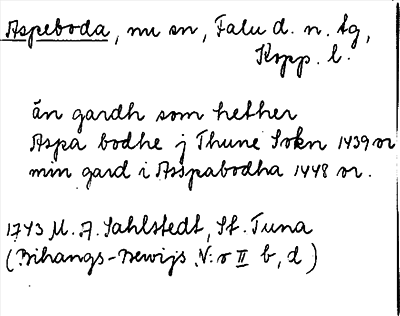 Aspeboda, nu sn, Falu d. n. tg,
Kopp. l.
än gardh som hether
Aspa bodhe j Thune Sokn 1439 or
min gard i Asspabodha 1448 or.
1743 M. A. Sahlstedt, St. Tuna
(Bihangs-Bewijs N:o II b, d)